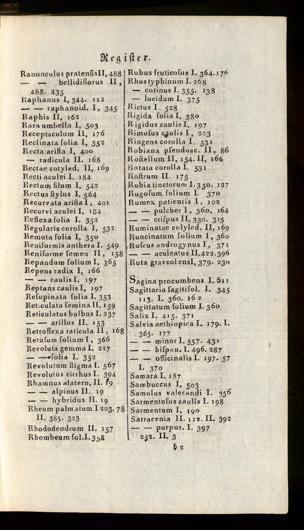 Register.
Ranunculus pratensis II, 488
— — bellidiflorus II,
488. 435
Raphanus I, 344. 112
— — raphanoid. I, 345
Raphis II, 162
Rara umbella I, 503
Receptaculum II, 176
Reclinata folia I, 352
Recta arista I, 400
— radicula II. 168
Rectae cotyled. II, 169
Recti aculei I. 184
Rectum filum I, 542
Rectus stylus I, 564
Recurvata arista I, 401
Recurvi aculei I, 184
Reflexa folia I. 352
Regularis corolla I, 532
Remota folia I, 350
Reniformis anthera I. 549
Reniforme femen II, 158
Repandum folium I, 365
Repens radix I, 166
— — caulis I. 197
Reptans caulis I, 197
Resupinata folia I. 353
Reticulata femina II. 159
Reticulatus bulbus I. 237
— — arillus II. 153
Retroflexa raticula II, 168
Retusum folium I, 366
Revoluta gemma I. 217
— — folia I. 352
Revolutum stigma I. 567
Revolutus cirrhus I. 394
Rhamnus alatern. II. 19
— — alpinus II. 19
— — hybridus II. 19
Rheum palmatum I 203. 78
II. 385. 323
Rhododendrum II. 157
Rhombeum fol. I. 358
Rubus fruticosus I. 364. 176
Rhus typhinum I. 268
— cotinus I. 355. 138
— lucidum I. 375
Rictus I. 528
Rigida folia I, 380
Rigidus caulis I, 197
Rimosus caulis I, 203
Ringens corolla I. 531
Robiana psendoac. II. 86
Rostellum II, 154. II, 166
Rotata corolla I. 531
Rostrum II. 175
Rubia tinctorum I. 350. 127
Rugosum folium I. 370
Rumex patientia I, 102
— — pulcher I, 360. 164
— — crispus II, 330. 315
Ruminatae cotyled. II, 169
Runcinatum folium I, 360
Ruscus androgynus I, 371
— — aculeatus II. 422. 396
Ruta graveolens I, 379. 230
Sagina procumbens I. 511
Sagittaria sagittifol. I. 345
113. I. 360. 162
Sagittatum folium I. 360
Salix I. 415. 371
Salvia aethiopica I. 179. I.
365. 177
— — minor I, 557. 431
— — hispan. I. 496. 287
— — officinalis I. 197. 57
I. 370
Samara I. 187
Sambuccus I, 503
Samolus valerandi I. 356
Sarmentosus caulis I. 198
Sarmentum I, 190
Sarracenia II. 112. II. 392
— — purpur. I. 397
252. II. 3